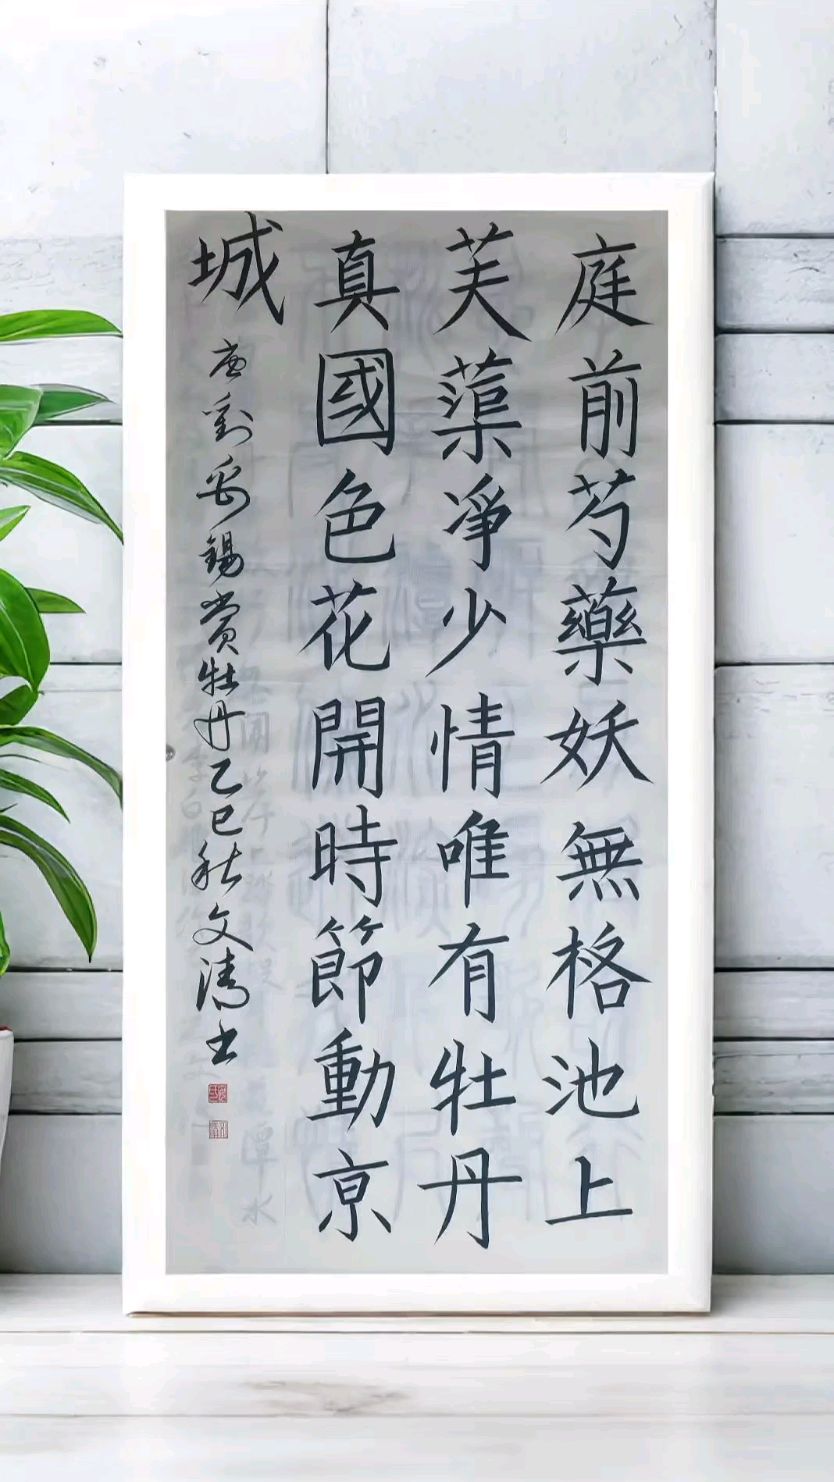 庭前芍藥妖無格池上
芙蕖凈少情唯有牡丹
真國色花開時節動京
城
唐劉禹錫賞牡丹乙巳秋文濤書